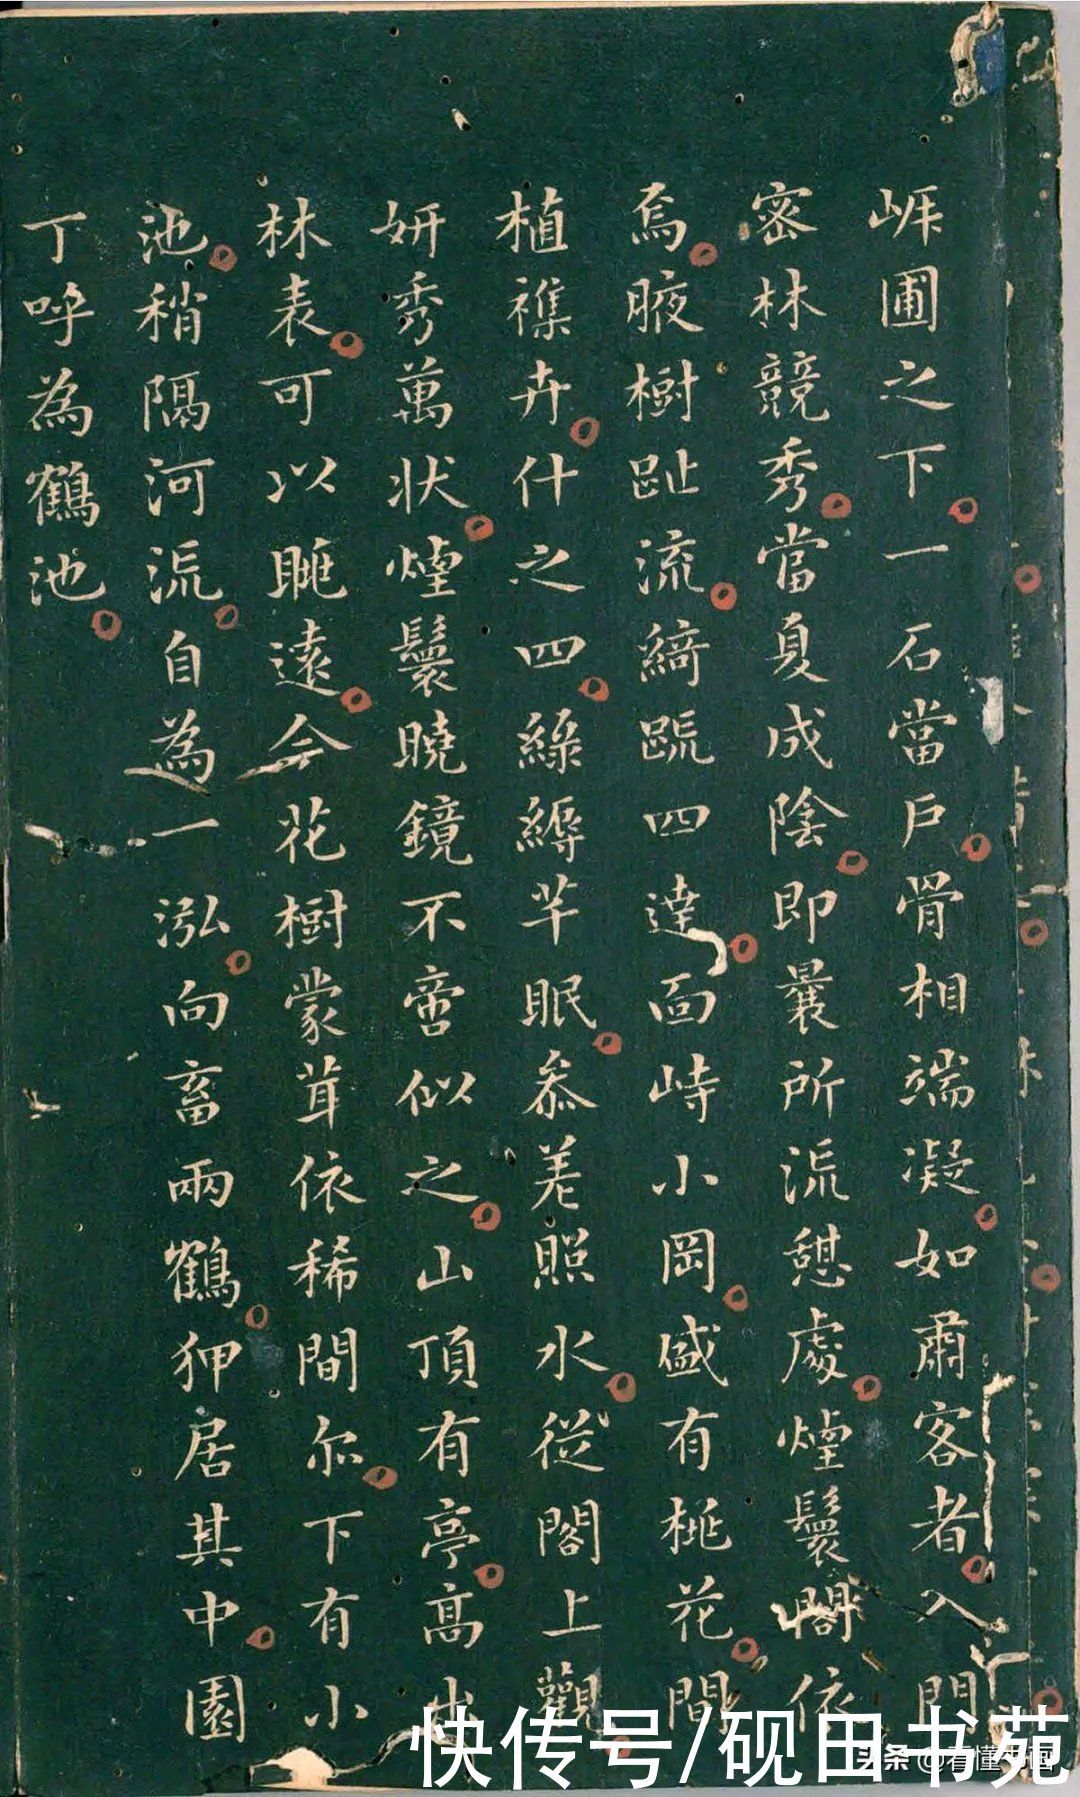 崕圃之下一石當戶骨相端凝如肅客者入門
密林競秀當夏成陰即曩所流憩處煙鬟閣依
焉腋樹趾流綺疏四達面峙小岡盛有桃花間
植襍卉什之四綠縟芊眠叅差照水從閣上觀
妍秀萬狀煙鬟曉鏡不啻似之山頂有亭高出
林表可以眺遠今花樹蒙茸依稀間尔下有小
池稍隔河流自為一泓向畜兩鶴狎居其中園
丁呼為鶴池
快传号/砚田书苑
头条@看懂书画